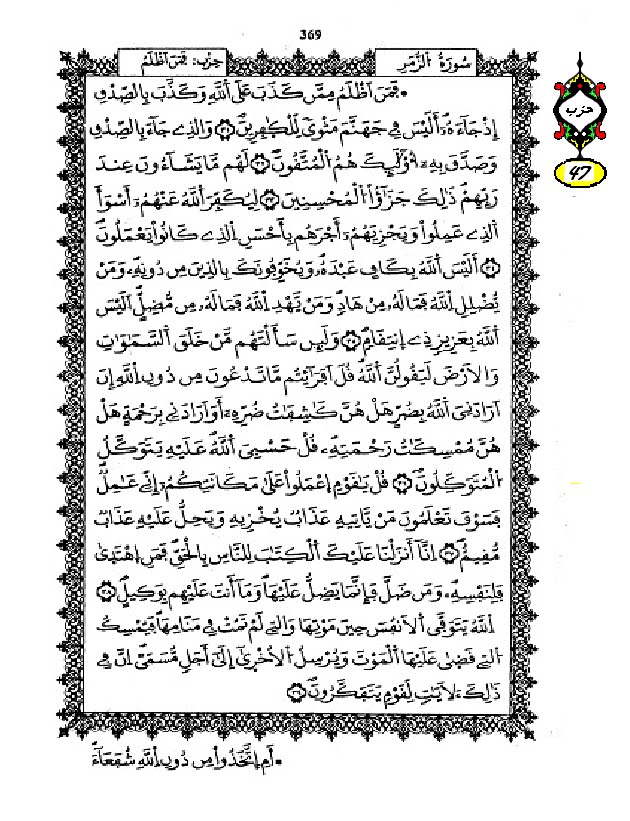 369
سُورَةُ اُ۬لزُّمَرِ
حِزْب: فَمَنَ اَظْلَمُ
حزب
47
•فَمَنَ اَظْلَمُ مِمَّن كَذَبَ عَلَى اَ۬للَّهِ وَكَذَّبَ بِالصِّدْقِ
إِذْ جَآءَهُۥٓ أَلَيْسَ فِے جَهَنَّمَ مَثْوىً لِّلْكٰفِرِينَۖ وَالذِے جَآءَ بِالصِّدْقِ
وَصَدَّقَ بِهِۦٓ أُوْلَٰٓئِكَ هُمُ اُ۬لْمُتَّقُونَۖ لَهُم مَّا يَشَآءُونَ عِندَ
رَبِّهِمْۖ ذَٰلِكَ جَزَٰٓؤُاْ اُ۬لْمُحْسِنِينَۖ لِيُكَفِّرَ اَ۬للَّهُ عَنْهُمُۥٓ أَسْوَأَ
اَ۬لذِے عَمِلُواْ وَيَجْزِيَهُمُۥٓ أَجْرَهُم بِأَحْسَنِ اِ۬لذِے كَانُواْ يَعْمَلُونَۖ
أَلَيْسَ اَ۬للَّهُ بِكَافٍ عَبْدَهُۥ وَيُخَوِّفُونَكَ بِالذِينَ مِن دُونِهِۦۖ وَمَنْ
يُّضْلِلِ اِ۬للَّهُ فَمَا لَهُۥ مِنْ هَادٖۖ وَمَنْ يَّهْدِ اِ۬للَّهُ فَمَا لَهُۥ مِن مُّضِلٍّۖ اَلَيْسَ
اَ۬للَّهُ بِعَزِيزٖ ذِے اِ۪نتِقَامٖۖ وَلَئِن سَأَلْتَهُم مَّنْ خَلَقَ اَ۬لسَّمَٰوَٰتِ
وَالَارْضَ لَيَقُولُنَّ اَ۬للَّهُۖ قُلَ اَفَرَٰٓيْتُم مَّا تَدْعُونَ مِن دُونِ اِ۬للَّهِ إِنَ
اَرَادَنِيَ اَ۬للَّهُ بِضُرٍّ هَلْ هُنَّ كَٰشِفَٰتُ ضُرِّهِۦٓ أَوَ اَرَادَنِے بِرَحْمَةٍ هَلْ
هُنَّ مُمْسِكَٰتُ رَحْمَتِهِۦۖ قُلْ حَسْبِيَ اَ۬للَّهُۖ عَلَيْهِ يَتَوَكَّلُ
اُ۬لْمُتَوَكِّلُونَۖ قُلْ يَٰقَوْمِ اِ۪عْمَلُواْ عَلَىٰ مَكَانَتِكُمُۥٓ إِنِّے عَٰمِلٞۖ
فَسَوْفَ تَعْلَمُونَ مَنْ يَّأْتِيهِ عَذَابٞ يُخْزِيهِ وَيَحِلُّ عَلَيْهِ عَذَابٞ
مُّقِيمٌۖ اِنَّآ أَنزَلْنَا عَلَيْكَ اَ۬لْكِتَٰبَ لِلنَّاسِ بِالْحَقِّۖ فَمَنِ اِ۪هْتَدَىٰ
فَلِنَفْسِهِۦۖ وَمَن ضَلَّ فَإِنَّمَا يَضِلُّ عَلَيْهَاۖ وَمَآ أَنتَ عَلَيْهِم بِوَكِيلٍۖ
اَ۬للَّهُ يَتَوَفَّى اَ۬لَانفُسَ حِينَ مَوْتِهَا وَالتِے لَمْ تَمُتْ فِے مَنَامِهَاۖ فَيُمْسِكُ
اُ۬لتِے قَضَىٰ عَلَيْهَا اَ۬لْمَوْتَ وَيُرْسِلُ اُ۬لُاخْرَىٰٓ إِلَىٰٓ أَجَلٖ مُّسَمًّىۖ اِنَّ فِے
ذَٰلِكَ ءَلَايَٰتٖ لِّقَوْمٖ يَتَفَكَّرُونَۖ
•أَمِ اِ۪تَّخَذُواْ مِن دُونِ اِ۬للَّهِ شُفَعَآءَۖ